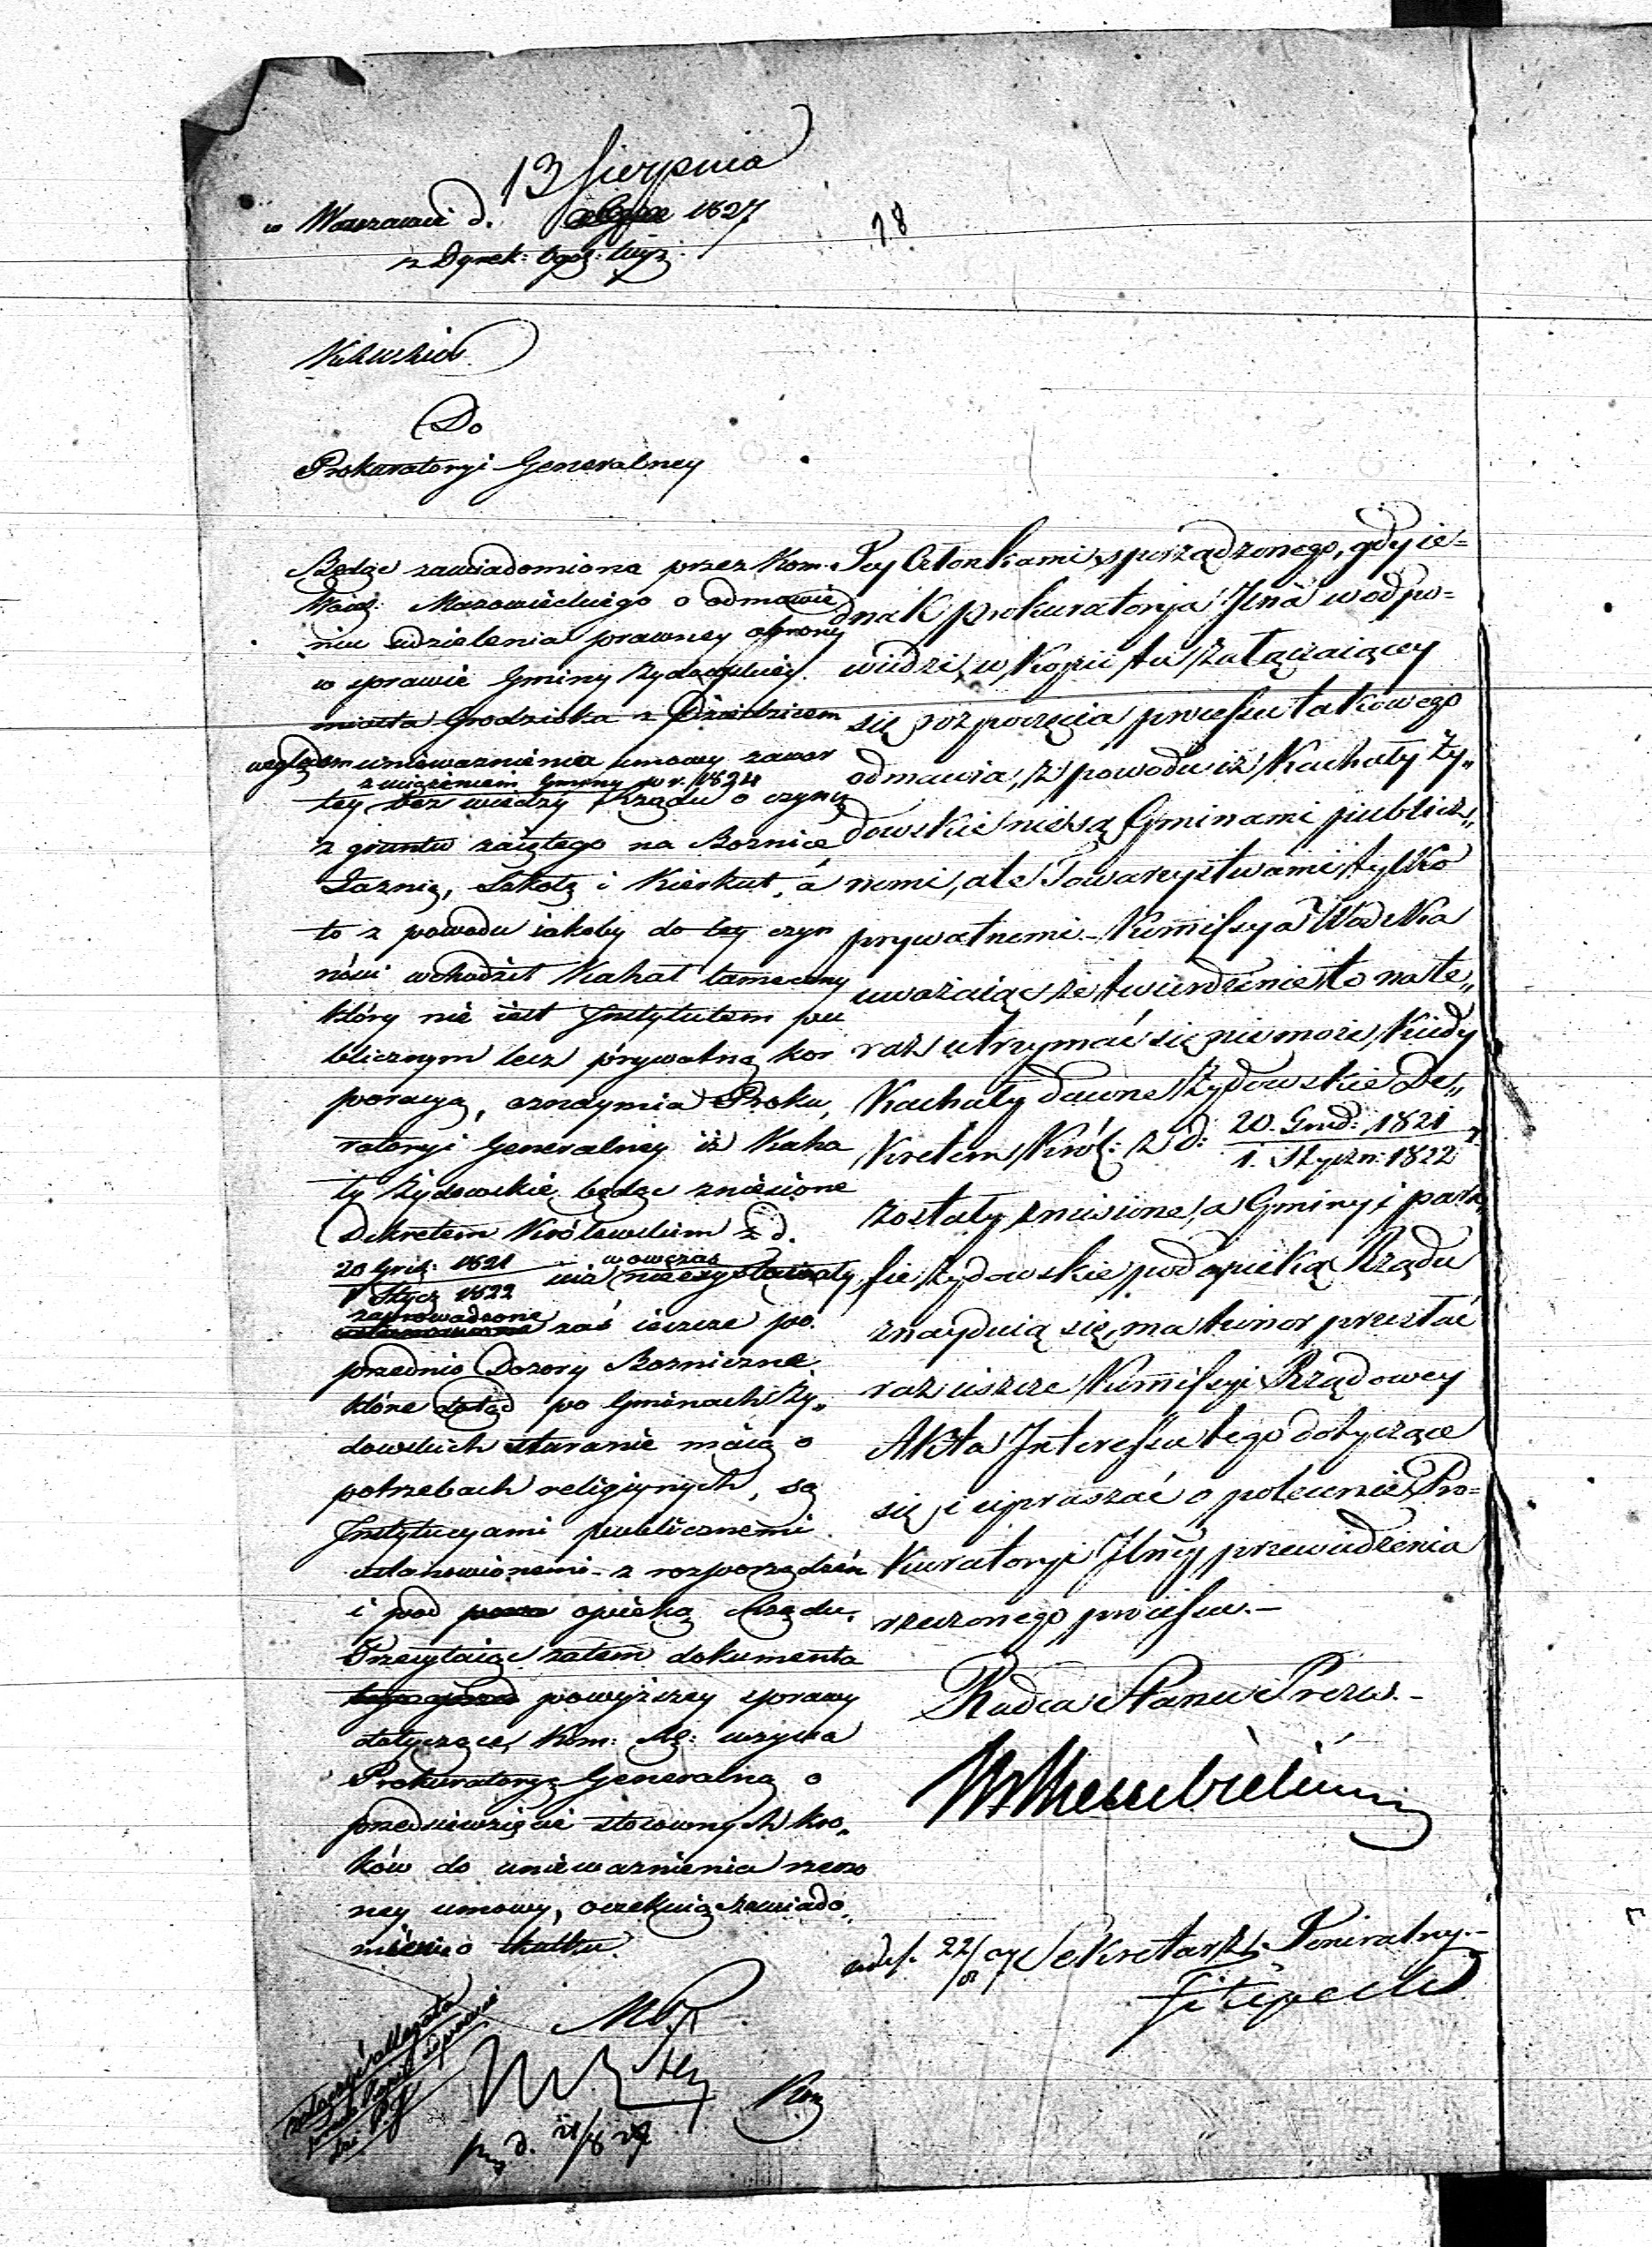 13 Sierpnia
w Warszawie d. 1827
z Dyrek: Ogól: Wyz:
78
Do
Prokuratoryi Generalney
Będąc zawiadomiona przez Kom.
Woiew: Mazowieckiego o odmowie
niu udzielenia prawney obrony
w sprawie Gminy Żydowskiey
miasta Grodziska z Dziedzicem
względem unieważnienia umowy zawar
z uciążeniem Gminy w r. 1824
tey bez wiedzy Rządu o czynsz
z gruntu zaiętego na Bożnicę
Łaźnią, Szkołę i Kierkut, a
to z powodu iakoby do tey czyn
ności wchodził Kahał tameczny
który nie iest Instytutem pu
blicznym lecz prywatną kor
poracyą, oznaymia Proku,
ratoryi Generalney iż Kaha
ły Żydowskie będąc zniesione
Dekretem Królewskim z d.
20 Grud: 1821
1 Stycz 1822
wowczas
nie exystowały,
zaprowadzone
zaś ieszcze po
przednio Dozory Bożniczne
które dotąd po Gminach Ży„
dowskich staranie maią o
potrzebach religiynych, są
Instytucyami publicznemi
ustanowionemi z rozporządzeń
i pod opieką Rządu.
Przesyłaiąc zatem dokumenta
powyższey sprawy
dotyczące, Kom: Rz: wzywa
Prokuratoryą Generalną o
przedsięwzięcie stosownych kro„
ków do unieważnienia rzeczo
ney umowy, oczekuiąc zawiado„
mienia o skutku.
załączyć allegata
Tey Członkami sporządzonego, gdy ie=
dnak prokuratorya Jlna w odpo=
wiedzi w Kopii tu załączaiącey
się rozpoczęcia processu takowego
odmawia, z powodu iż Kachały Ży„
dowskie nie są Gminami publicz„
nemi, ale Towarzystwami tylko
prywatnemi. – Kommissya Wodzka
uważaiąc że twierdzenie to na te„
raz utrzymać się nie może, kiedy
Kachały dawne Żydowskie De„
kretem Król: z d: 20. Grud: 1821
1. Styczn: 1822 r
zostały zniesione, a Gminy i para„
fie żydowskie pod opieką Rządu
znayduią się, ma honor przesłać
raz ieszcze Kommissyi Rządowey
Akta Interessu tego dotyczące
się i upraszać o polecenie Pro=
kuratoryi Jlney przewiedzenia
rzeczonego processu. –
Radca Stanu Prezes. –
Sekretarz Jeneralny. –
Filipecki